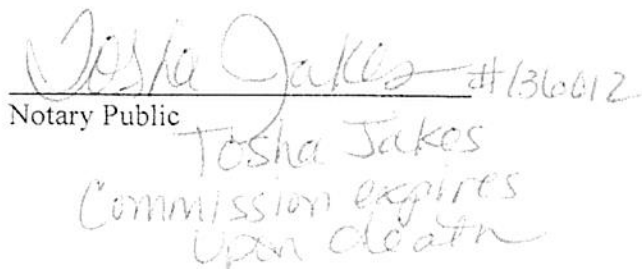 Tosha Jakes #136012
Notary Public
Tosha Jakes
Commission expires
upon death